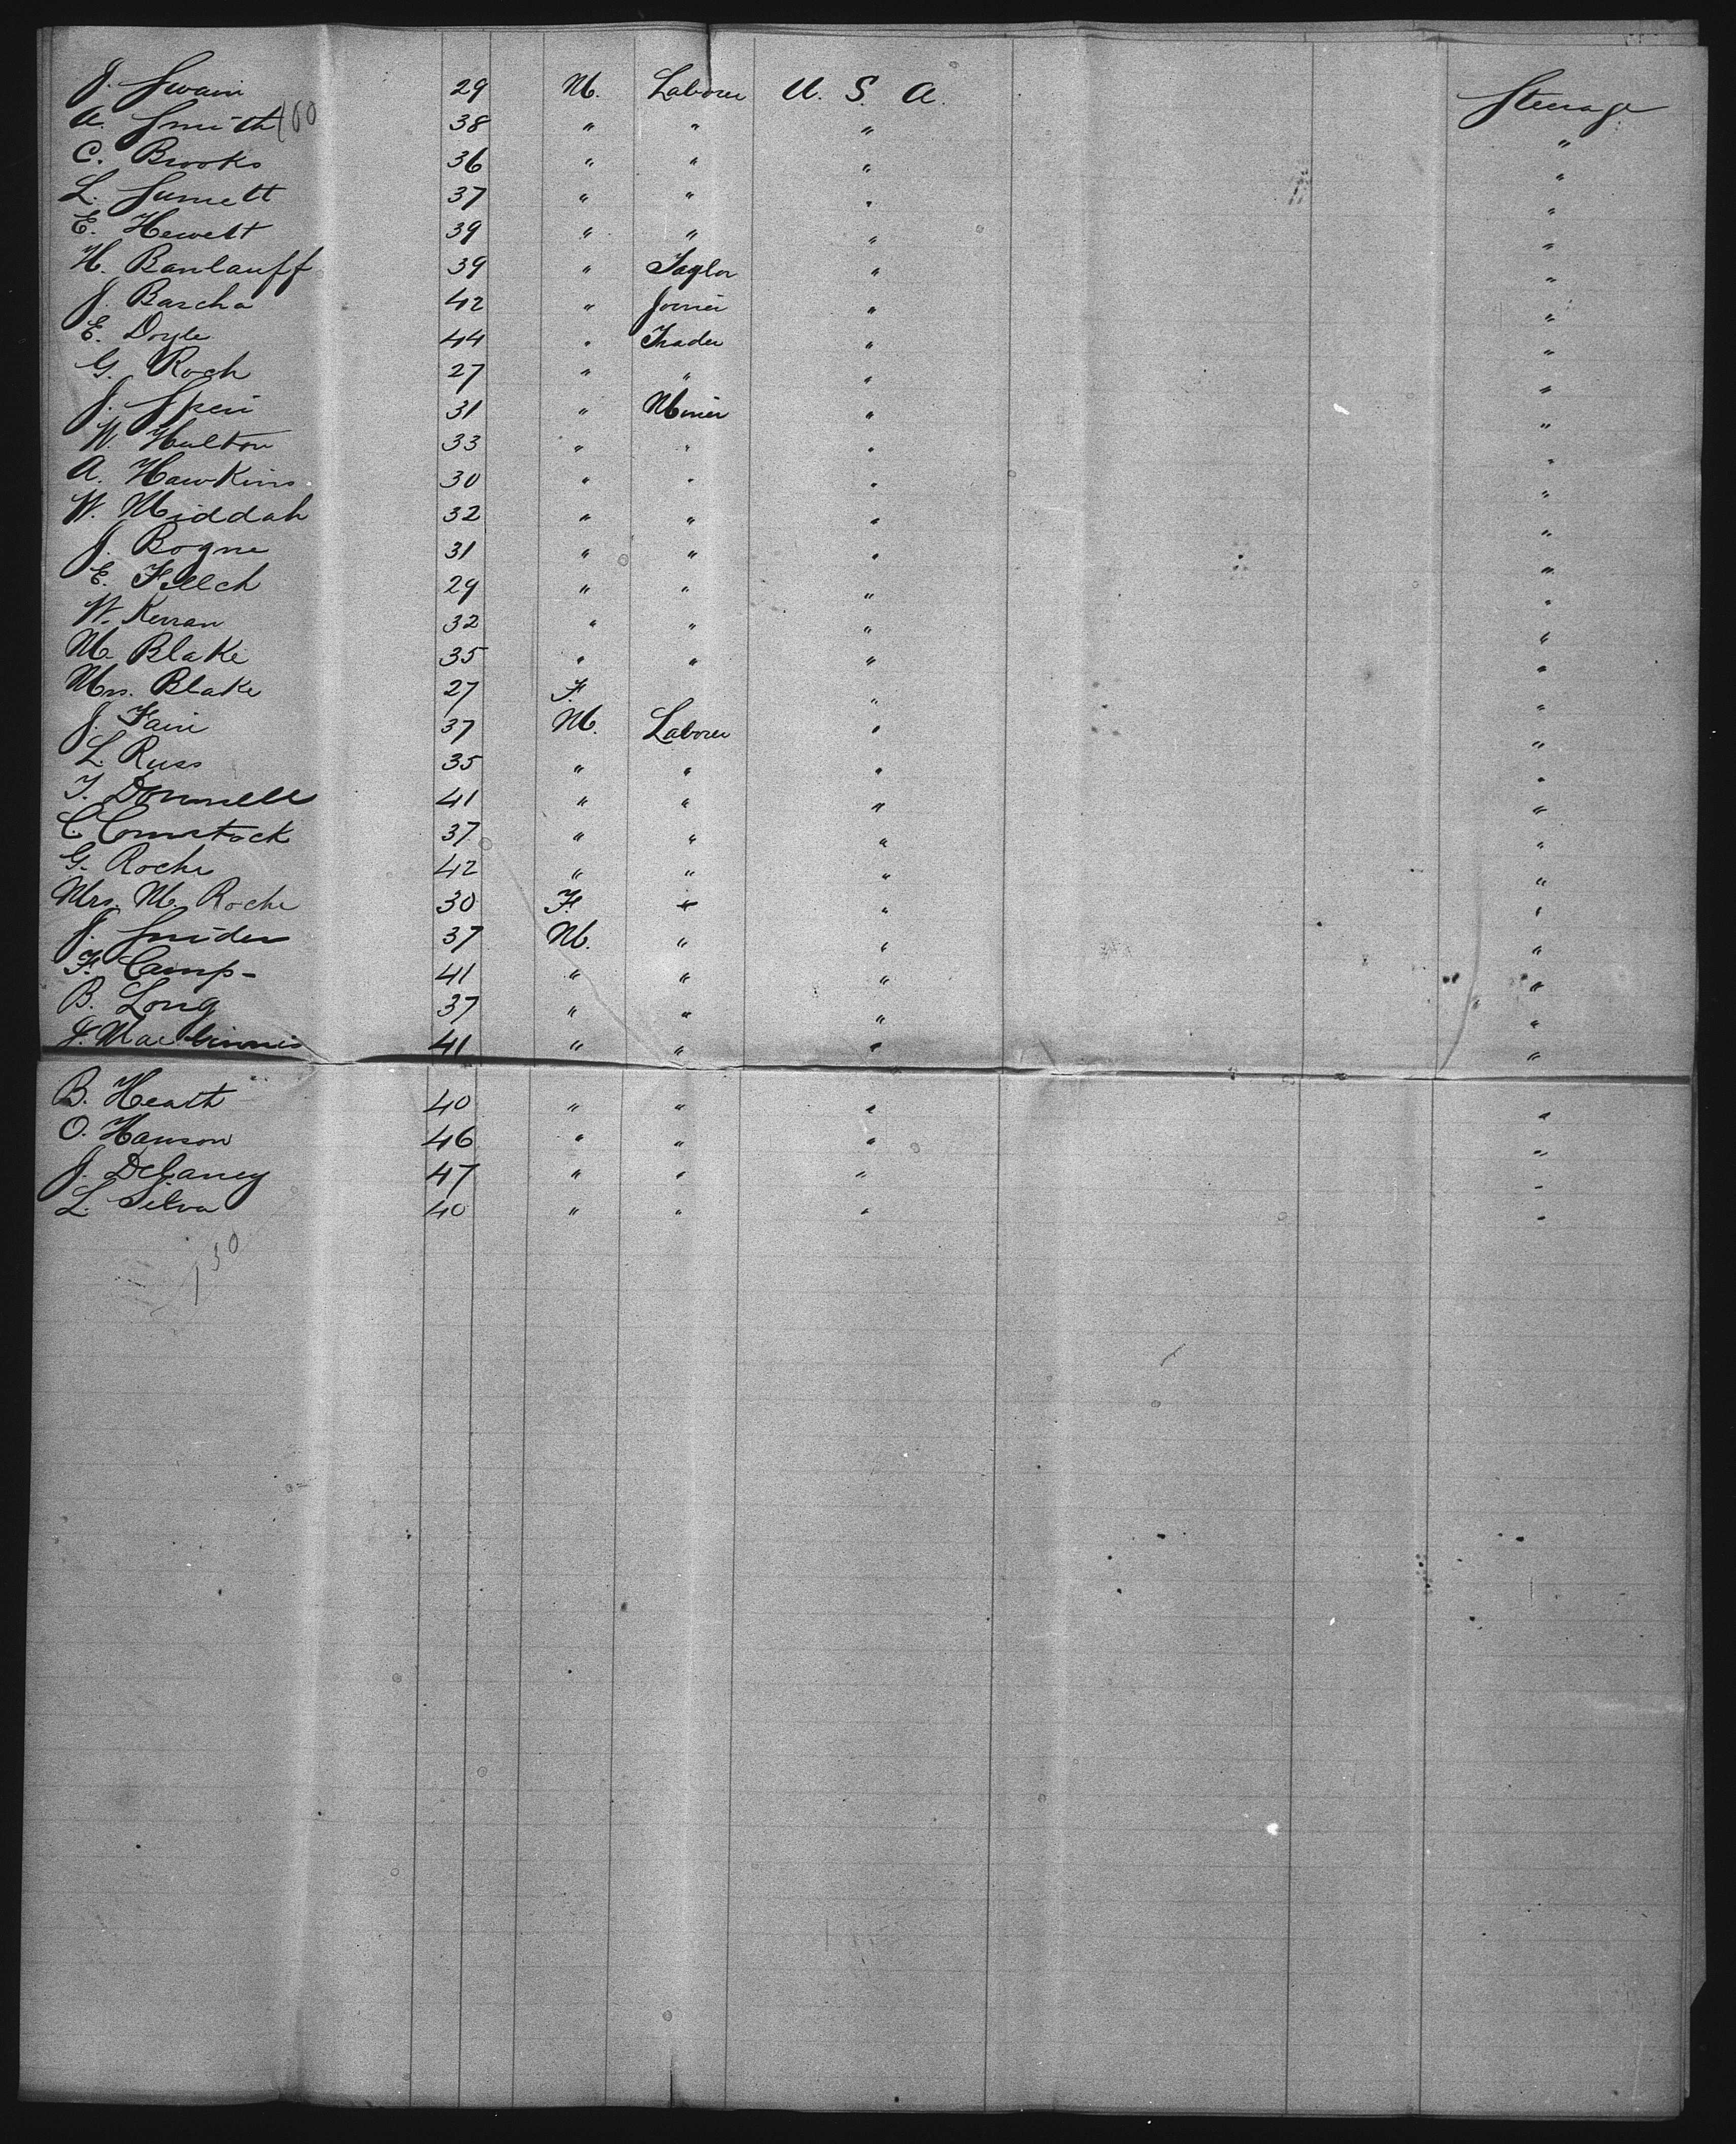 J. Swain 29 M. Laborer U. S. A. Steerage
A. Smith 100 38 " " " "
C. Brooks 36 " " " "
L. 37 " " " "
E. Hewett 39 " " " "
H. Banlauff 39 " Taylor " "
J. Bascha 42 " Joiner " "
E. Doyle 44 " Trader " "
G. Roch 27 " " " "
J. 31 " Miner " "
W. Hulton 33 " " " "
A. Hawkins 30 " " " "
W. Middah 32 " " " "
J. Bogne 31 " " " "
E. 29 " " " "
W. Kerran 32 " " " "
M. Blake 35 " " " "
Mrs. Blake 27 F. " "
J. Fain 37 M. Laborer " "
L. Russ 35 " " " "
T. Donnell 41 " " " "
C. Comstock 37 " " " "
G. Roche 42 " " " "
Mrs. M. Roche 30 F. " " "
J. Snider 37 M. " " "
F. Camp- 41 " " " "
B. Long 37 " " " "
41 " " " "
B. Heath 40 " " " "
O. Hanson 46 " " " "
J. DeLaney 47 " " " "
L. Silva 40 " " " "
130